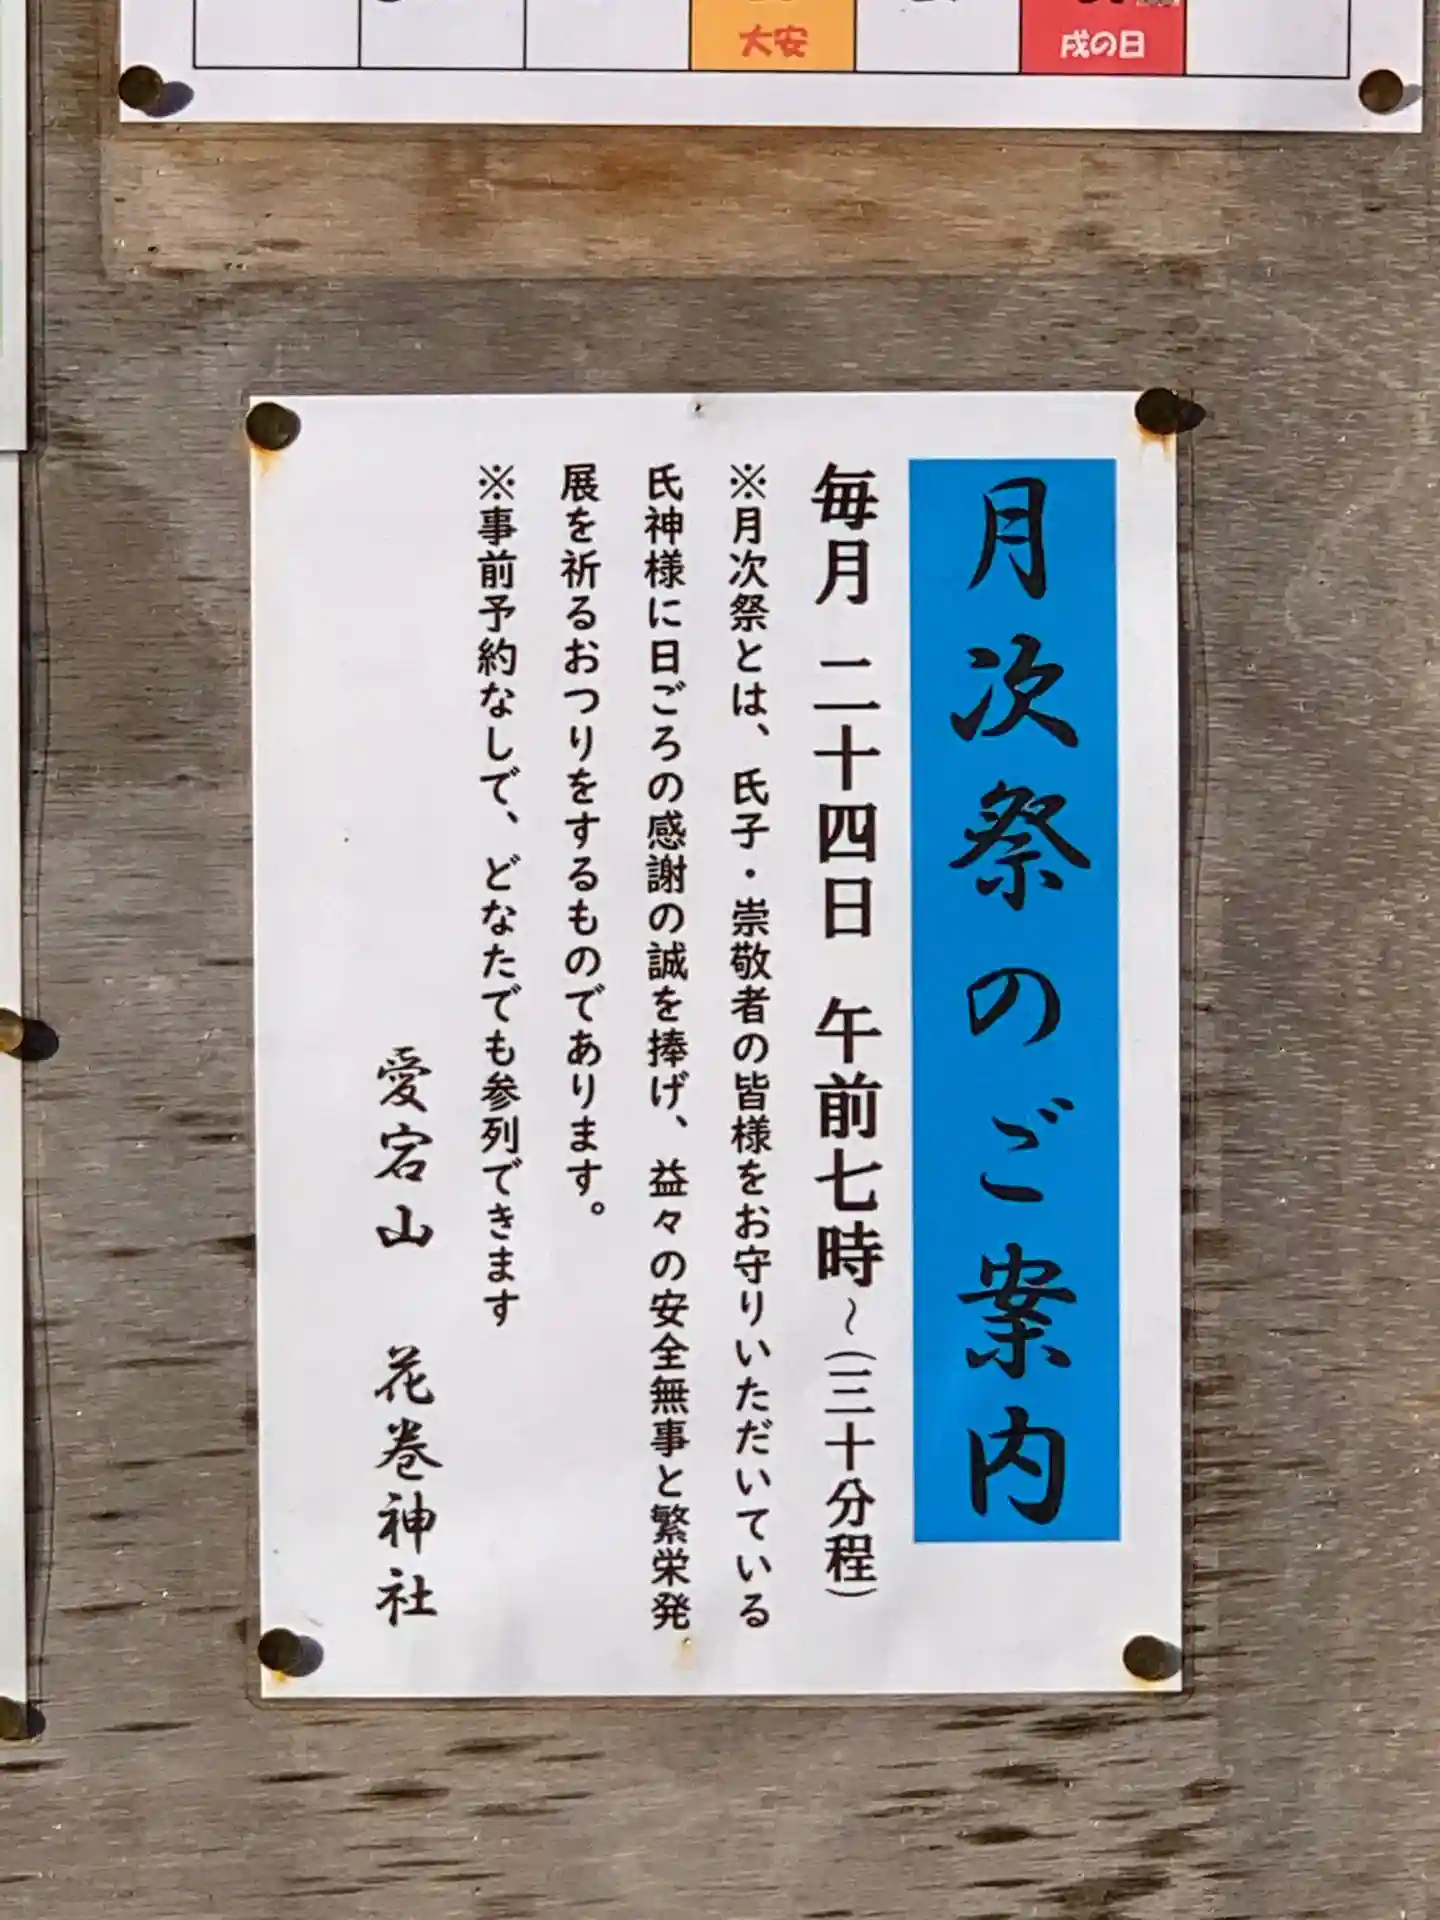 大安
戌の日
月次祭のご案内
毎月 二十四日 午前七時~(三十分程)
※月次祭とは、氏子・崇敬者の皆様をお守りいただいている
氏神様に日ごろの感謝の誠を捧げ、益々の安全無事と繁栄発
展を祈るおつりをするものであります。
※事前予約なしで、どなたでも参列できます
愛宕山 花巻神社